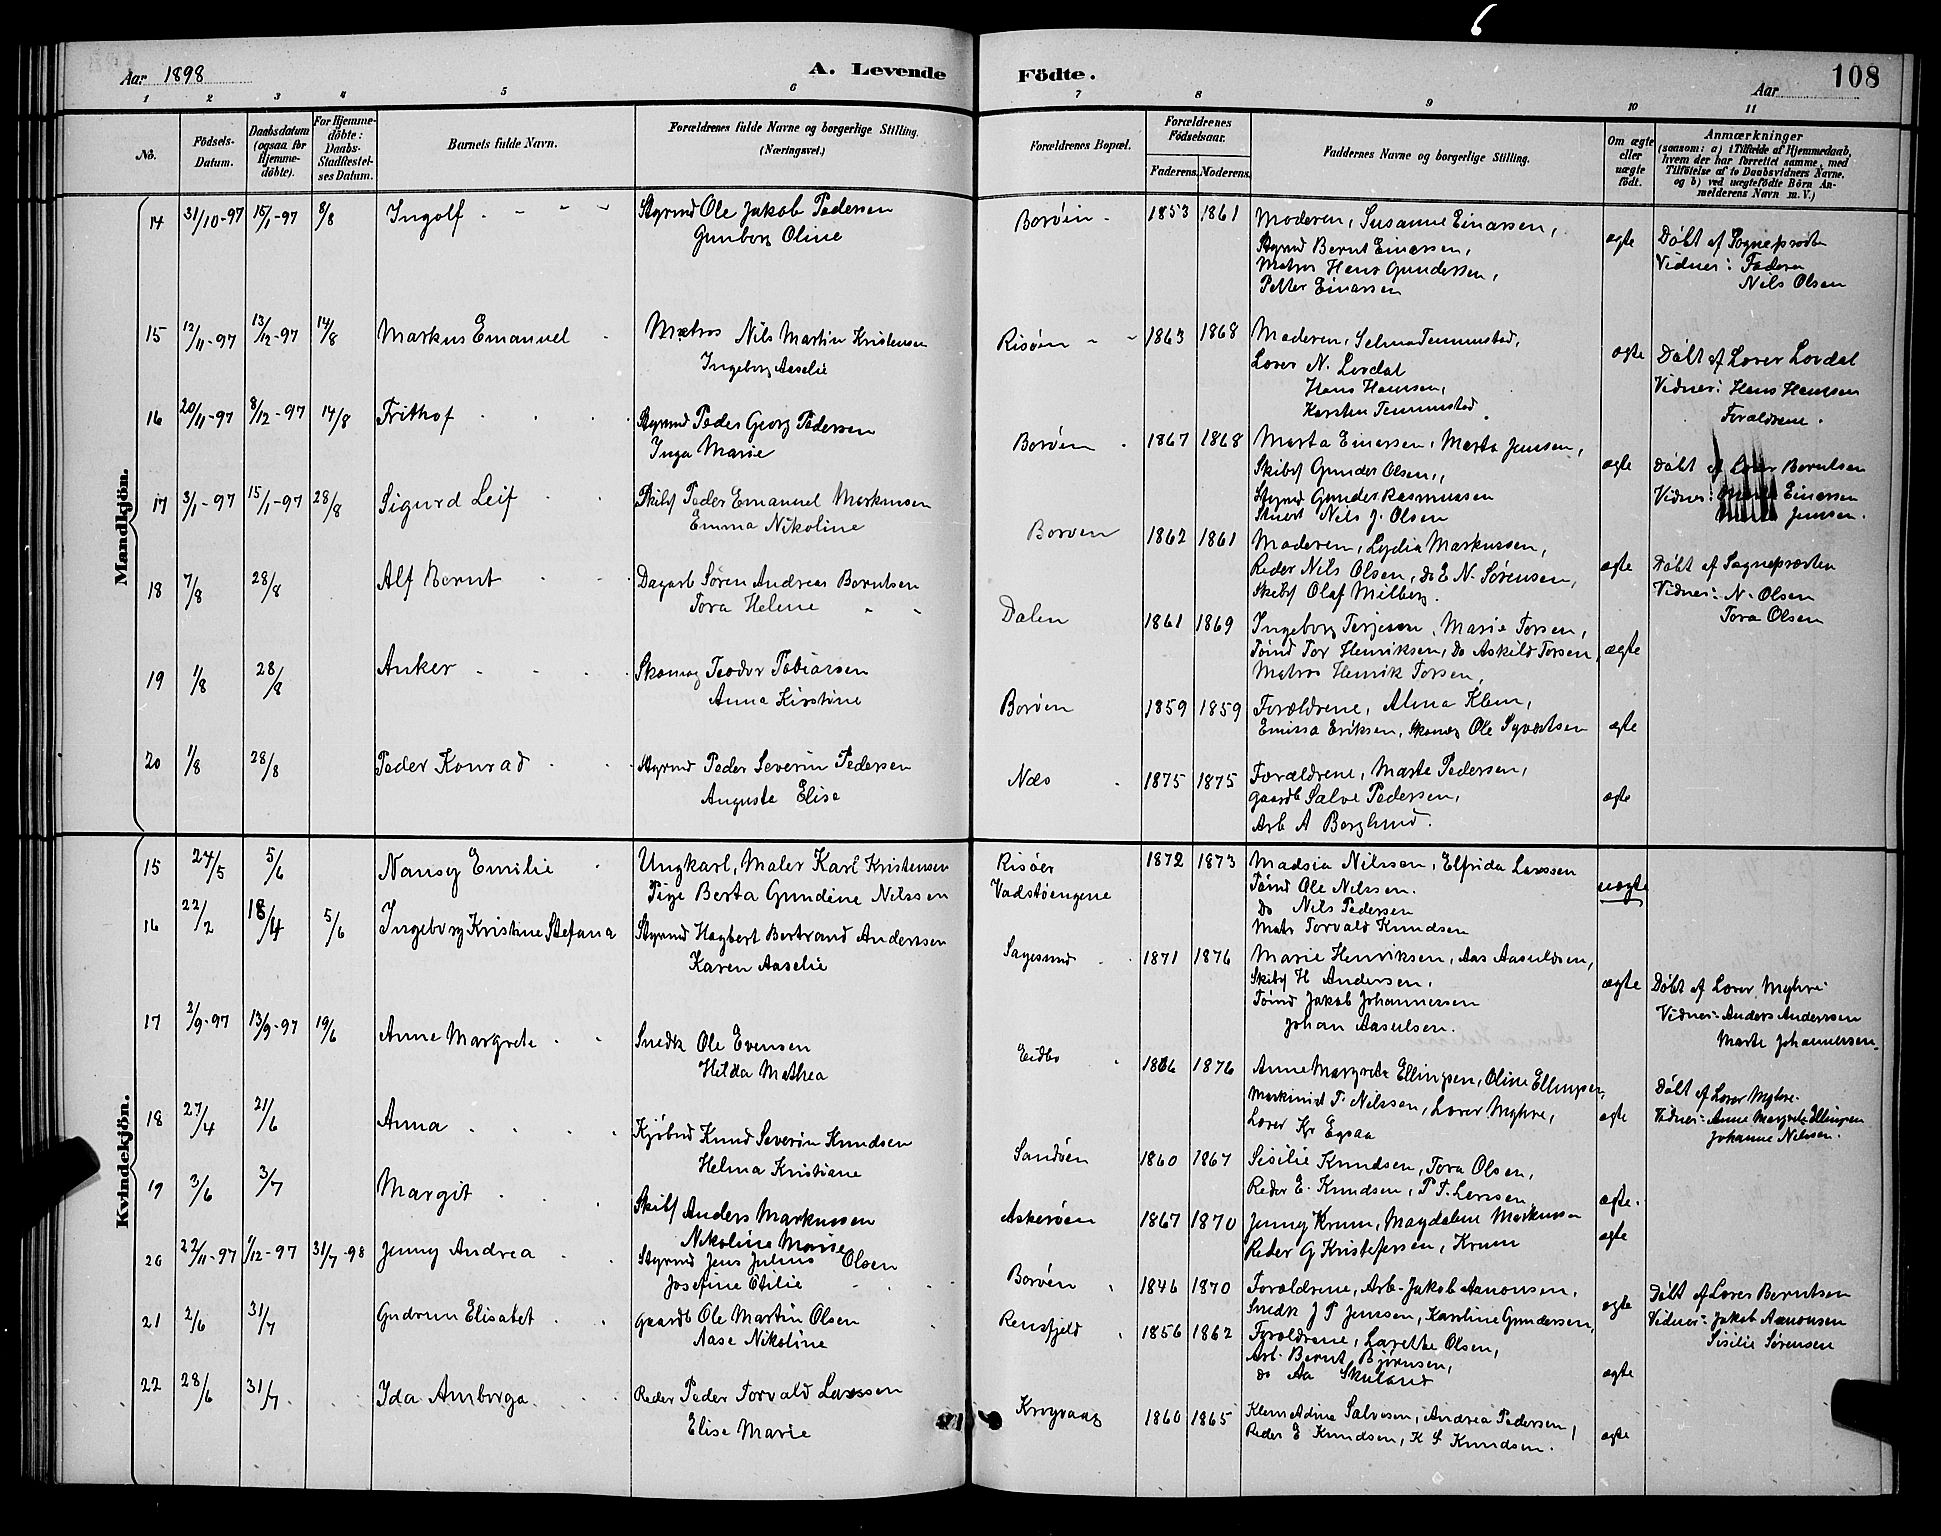 6
Aar 1898
A. Levende
Födte.
Aar
108
1 2 3 4 5 6 7 8 9 10 11
No.
Födsels-Datum.
Daabsdatum (ogsaa for Hjemme-döbte).
For Hjemme-döbte: Daabs-Stadfæstel-ses Datum.
Barnets fulde Navn.
Forældrenes fulde Navne og borgerlige Stilling. (Næringsvei.)
Forældrenes Bopæl.
Forældrenes Födselsaar.
Faderens. Moderens.
Faddernes Navne og borgerlige Stilling.
Om ægte eller uægte födt.
Anmærkninger
(saasom: a) i Tilfælde af Hjemmedaab, hvem der har forrettet samme, med Tilföielse af to Daabsvidners Navne, og b) ved uægtefödte Börn An-melderens Navn m. V.)
Mandkjön.
14 31/10-97 15/1-97 8/8 Ingolf
Styrmd Ole Jakob Pedersen
Gunborg Oline
Borøen 1853 1861
Moderen, Susanne Einarsen,
Styrmd Bernt Einarsen,
Matros Hans Gundersen,
Petter Einarsen
ægte
Döbt af Sognepresten
Vidner: Faderen
Nils Olsen
15 12/11-97 13/12-97 14/8 Markus Emanuel
Matros Nils Martin Kristensen
Ingeborg Aaselie
Risøen 1863 1868
Moderen, Selma Temmestad,
Lærer N. Lovdal
Hans Hansen,
Karsten Temmestad
ægte
Döbt af Lærer Lovdal
Vidner: Hans Hansen
Forældrene.
16 20/11-97 8/12-97 14/8 Frithof
Styrmd Peder Georg Pedersen
Inga Marie
Borøen 1867 1868
Marta Einarsen, Marta Jensen,
Skibsf Gunder Olsen,
Styrmd Gunder Rasmussen
Stuert Nils J. Olsen
ægte
Döbt af Lærer Berntsen
Vidner: Marta Einarsen
Jensen.
17 3/1-97 15/1-97 28/8 Sigurd Leif
Skibsf Peder Emanuel Markussen
Emma Nikoline
Borøen 1862 1861
Moderen, Lydia Markussen,
Reder Nils Olsen, do E N. Sørensen,
Skibsf Olaf Milberg.
ægte
Döbt af Sognepræsten
Vidner: N. Olsen
Tora Olsen
18 7/8 28/8 Alf Bernt
Dagarb Sören Andreas Berntsen
Tora Helene
Dalen 1861 1869
Ingeborg Terjesen, Marie Torsen,
Tømd Tor Henriksen, do Askild Torsen,
Matros Henrik Torsen,
ægte
19 1/8 28/8 Anker
Skomag Teodor Tobiassen
Anna Kirstine
Borøen 1859 1859
Forældrene, Alma Klem,
Emissa Eriksen, Skomag Ole Syvertsen
ægte
20 1/8 28/8 Peder Konrad
Styrmd Peder Severin Pedersen
Auguste Elise
Næs 1875 1875
Forældrene, Marte Pedersen,
Gaardb Salve Pedersen,
Arb A Berglund.
ægte
Kvindekjön.
15 27/5 5/6 Nansy Emilie
Ungkarl, Maler Karl Kristensen
Pige Berta Gundine Nilssen
Risøer
Vadstøengene
1872 1873
Madsia Nilssen, Elfrida Larssen
Tømd Ole Nilssen.
do Nils Pedersen
Matr Torvald Knudsen
uægte
16 22/2 18/4 5/6 Ingeborg Kristine Stefana
Styrmd Hagbert Bertrand Anderssen
Karen Aaselie
Sagesund 1871 1876
Marie Henriksen, Aas Aasulvsen,
Skibsf H Andersen,
Tømd Jakob Johannessen
Johan Aasulsen.
ægte
Döbt af Lærer Myhre
Vidner: Anders Anderssen
Marte Johannessen.
17 2/9-97 13/9-97 19/6 Anne Margrete
Snedk Ole Evensen
Hilda Mathea
Eidbo 1866 1876
Anne Margrete Ellingsen, Oline Ellingsen,
Maskinist T. Nilssen, Lærer Myhre,
Lærer Kr Egsaa
ægte
Döbt af Lærer Myhre.
Vidner: Anne Margrete Ellingsen
Johanne Nilssen.
18 27/4 21/6 Anna
Kjøbmd Knud Severin Knudsen
Helma Kristiane
Sandøen 1860 1867
Sisilie Knudsen, Tora Olsen,
Reder E. Knudsen, P T. Larssen
ægte.
19 3/6 3/7 Margit
Skibsf Anders Markussen
Nikoline Marie
Askerøen 1867 1870
Jenny Krum, Magdalene Markussen
Reder G Kristofersen, Krum
ægte
20 22/11-97 1/12-97 31/7-98 Jenny Andrea
Styrmd Jens Julius Olsen
Josefine Otilie
Borøen 1846 1870
Forældrene, Arb. Jakob Aanonsen,
Snedk J P Jenssen, Karoline Gundersen,
ægte
Döbt af Lærer Berntsen
Vidner: Jakob Aanonsen
Sisilie Sørensen
21 2/6 31/7 Gudrun Elisabet
Gaardb Ole Martin Olsen
Aase Nikoline
Rensfjeld 1856 1862
Forældrene, Larette Olsen,
Arb. Bernt Bjørnsen,
do Aa Skuland
ægte
22 28/6 31/7 Ida Amborga
Reder Peder Torvald Larssen
Elise Marie
Krogvaag 1860 1865
Klem Adine Salvesen, Andrea Pedersen,
Reder E Knudsen, K S Knudsen.
ægte